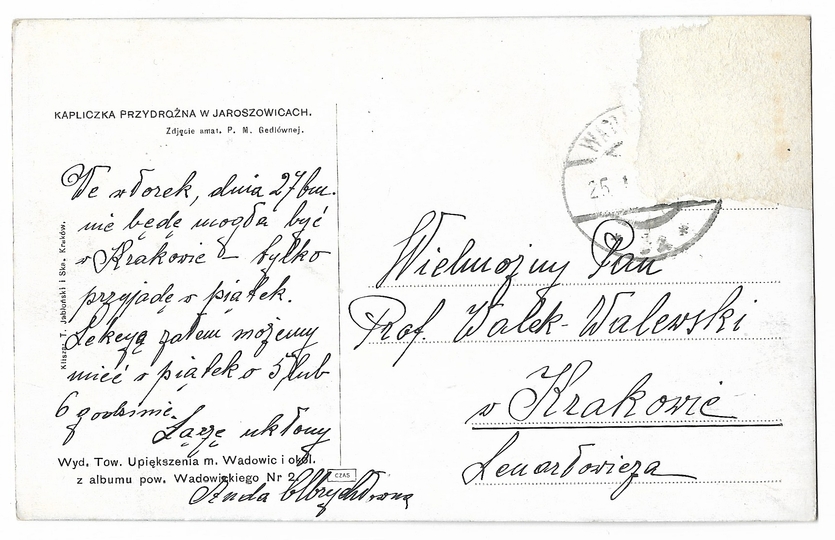 KAPLICZKA PRZYDROŻNA W JAROSZOWICACH.
Zdjęcie amat. P. M. Gedlównej.
We wtorek, dnia 27 bm.
nie będę mogła być
w Krakowie – tylko
przyjadę w piątek.
Lekcyą zatem możemy
mieć w piątek o 5 lub
6 godzinie.
Łączę ukłony
Anda
Wyd. Tow. Upiększenia m. Wadowic i okol.
z albumu pow. Wadowickiego Nr 2.
CZAS
Klisza: T. Jabłoński i Ska, Kraków.
25
Wielmożny Pan
Prof. Walek-Walewski
w Krakowie
Lenartowicza